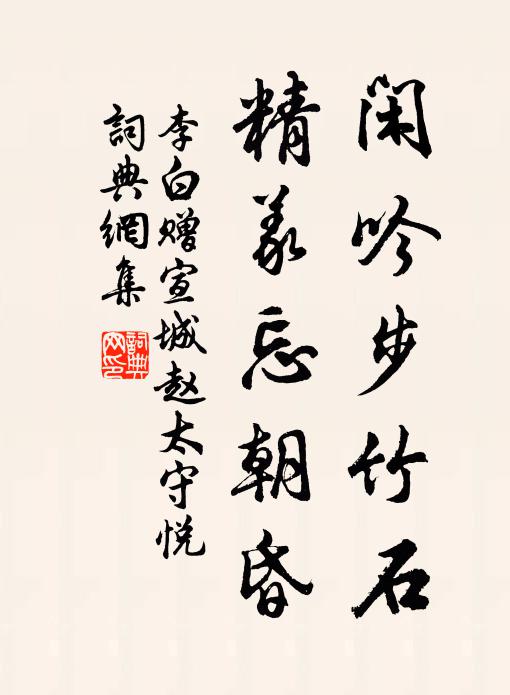 闲吟步竹石
精義忘朝昏
李白赠宣城赵太守悦
詞典網集
詞典网印